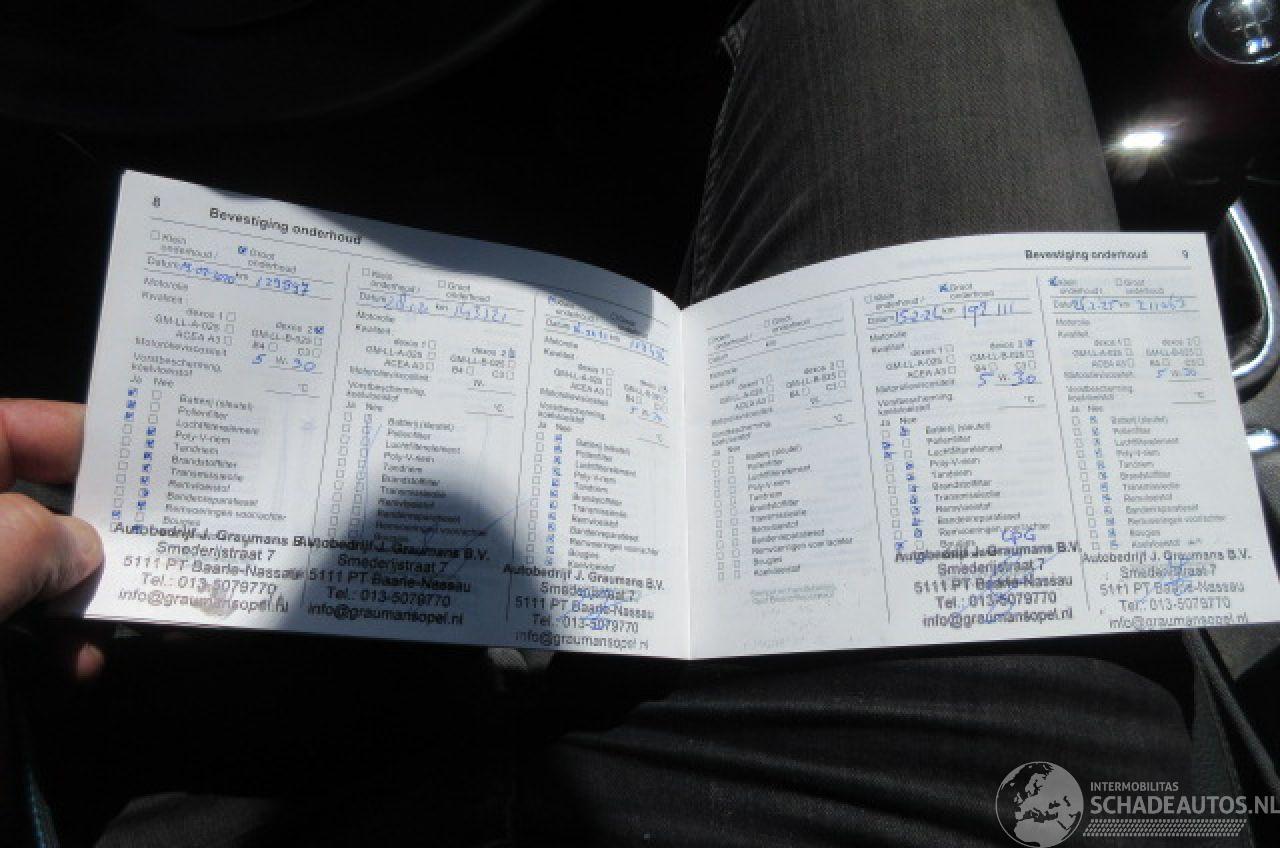 8
Bevestiging onderhoud
Klein onderhoud / Groot onderhoud
Datum km
Motorolie
Kwaliteit
dexos 1 dexos 2
GM-LL-A-025 GM-LL-B-025
ACEA A3 B4 C3
Motorolieviscositeit 5 W. 30
Vorstbescherming, koelvloeistof °C
Ja Nee
Batterij (sleutel)
Pollenfilter
Luchtfilterelement
Poly-V-riem
Tandriem
Brandstoffilter
Transmissieolie
Remvloeistof
Bandenreparatieset
Remvoeringen voor/achter
Bougies
Autobedrijf J. Graumans B.V.
Smederijstraat 7
5111 PT Baarle-Nassau
Tel.: 013-5079770
info@graumansopel.nl
Klein onderhoud / Groot onderhoud
Datum km
Motorolie
Kwaliteit
dexos 1 dexos 2
GM-LL-A-025 GM-LL-B-025
ACEA A3 B4 C3
Motorolieviscositeit W.
Vorstbescherming, koelvloeistof °C
Ja Nee
Batterij (sleutel)
Pollenfilter
Luchtfilterelement
Poly-V-riem
Tandriem
Brandstoffilter
Transmissieolie
Remvloeistof
Bandenreparatieset
Remvoeringen voor/achter
Bougies
Autobedrijf J. Graumans B.V.
Smederijstraat 7
5111 PT Baarle-Nassau
Tel.: 013-5079770
info@graumansopel.nl
Datum km
Motorolie
Kwaliteit
dexos 1
GM-LL-A-025
ACEA A3 B4 C3
Motorolieviscositeit 5 W. 30
Vorstbescherming, koelvloeistof °C
Ja Nee
Batterij (sleutel)
Pollenfilter
Luchtfilterelement
Poly-V-riem
Tandriem
Brandstoffilter
Transmissieolie
Remvloeistof
Bandenreparatieset
Remvoeringen voor/achter
Bougies
Koelvloeistof
Autobedrijf J. Graumans B.V.
Smederijstraat 7
5111 PT Baarle-Nassau
Tel.: 013-5079770
info@graumansopel.nl
Bevestiging onderhoud 9
Klein onderhoud / Groot onderhoud
Datum km
Motorolie
Kwaliteit
dexos 1 dexos 2
GM-LL-A-025 GM-LL-B-025
ACEA A3 B4 C3
Motorolieviscositeit W.
Vorstbescherming, koelvloeistof °C
Ja Nee
Batterij (sleutel)
Pollenfilter
Luchtfilterelement
Poly-V-riem
Tandriem
Brandstoffilter
Transmissieolie
Remvloeistof
Bandenreparatieset
Remvoeringen voor/achter
Bougies
Koelvloeistof
Klein onderhoud / Groot onderhoud
Datum 15-2-24 km 192 111
Motorolie
Kwaliteit
dexos 1 dexos 2
GM-LL-A-025 GM-LL-B-025
ACEA A3 B4 C3
Motorolieviscositeit 5 W. 30
Vorstbescherming, koelvloeistof °C
Ja Nee
Batterij (sleutel)
Pollenfilter
Luchtfilterelement
Poly-V-riem
Tandriem
Brandstoffilter
Transmissieolie
Remvloeistof
Bandenreparatieset
Remvoeringen voor/achter
Bougies
Autobedrijf J. Graumans B.V.
Smederijstraat 7
5111 PT Baarle-Nassau
Tel.: 013-5079770
info@graumansopel.nl
Klein onderhoud / Groot onderhoud
Datum km
Motorolie
Kwaliteit
dexos 1 dexos 2
GM-LL-A-025 GM-LL-B-025
ACEA A3 B4 C3
Motorolieviscositeit 5 W. 30
Vorstbescherming, koelvloeistof °C
Ja Nee
Batterij (sleutel)
Pollenfilter
Luchtfilterelement
Poly-V-riem
Tandriem
Brandstoffilter
Transmissieolie
Remvloeistof
Bandenreparatieset
Remvoeringen voor/achter
Bougies
Koelvloeistof
Autobedrijf J. Graumans B.V.
Smederijstraat 7
5111 PT Baarle-Nassau
Tel.: 013-5079770
info@graumansopel.nl
INTERMOBILITAS
SCHADEAUTOS.NL